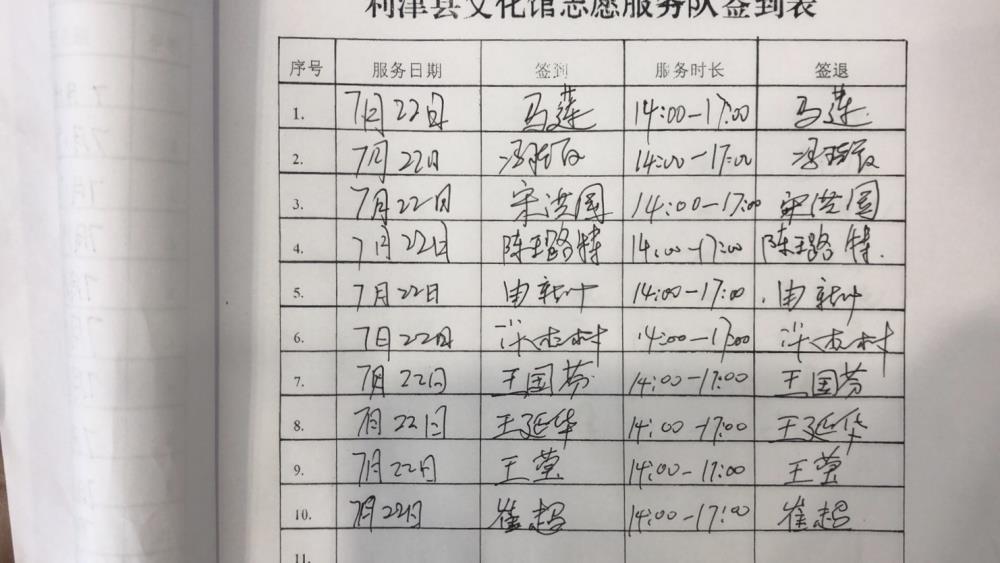 利津县文化馆志愿服务队签到表
序号 服务日期 签到 服务时长 签退
1. 7月22日 马莲 14:00-17:00 马莲
2. 7月22日 14:00-17:00
3. 7月22日 宋洪国 14:00-17:00 宋洪国
4. 7月22日 陈王路特 14:00-17:00 陈王路特.
5. 7月22日 由 14:00-17:00 由
6. 7月22日 14:00-17:00
7. 7月22日 王国芬 14:00-17:00 王国芬
8. 7月22日 王延华 14:00-17:00 王延华
9. 7月22日 王莹 14:00-17:00 王莹
10. 7月22日 崔超 14:00-17:00 崔超
11.